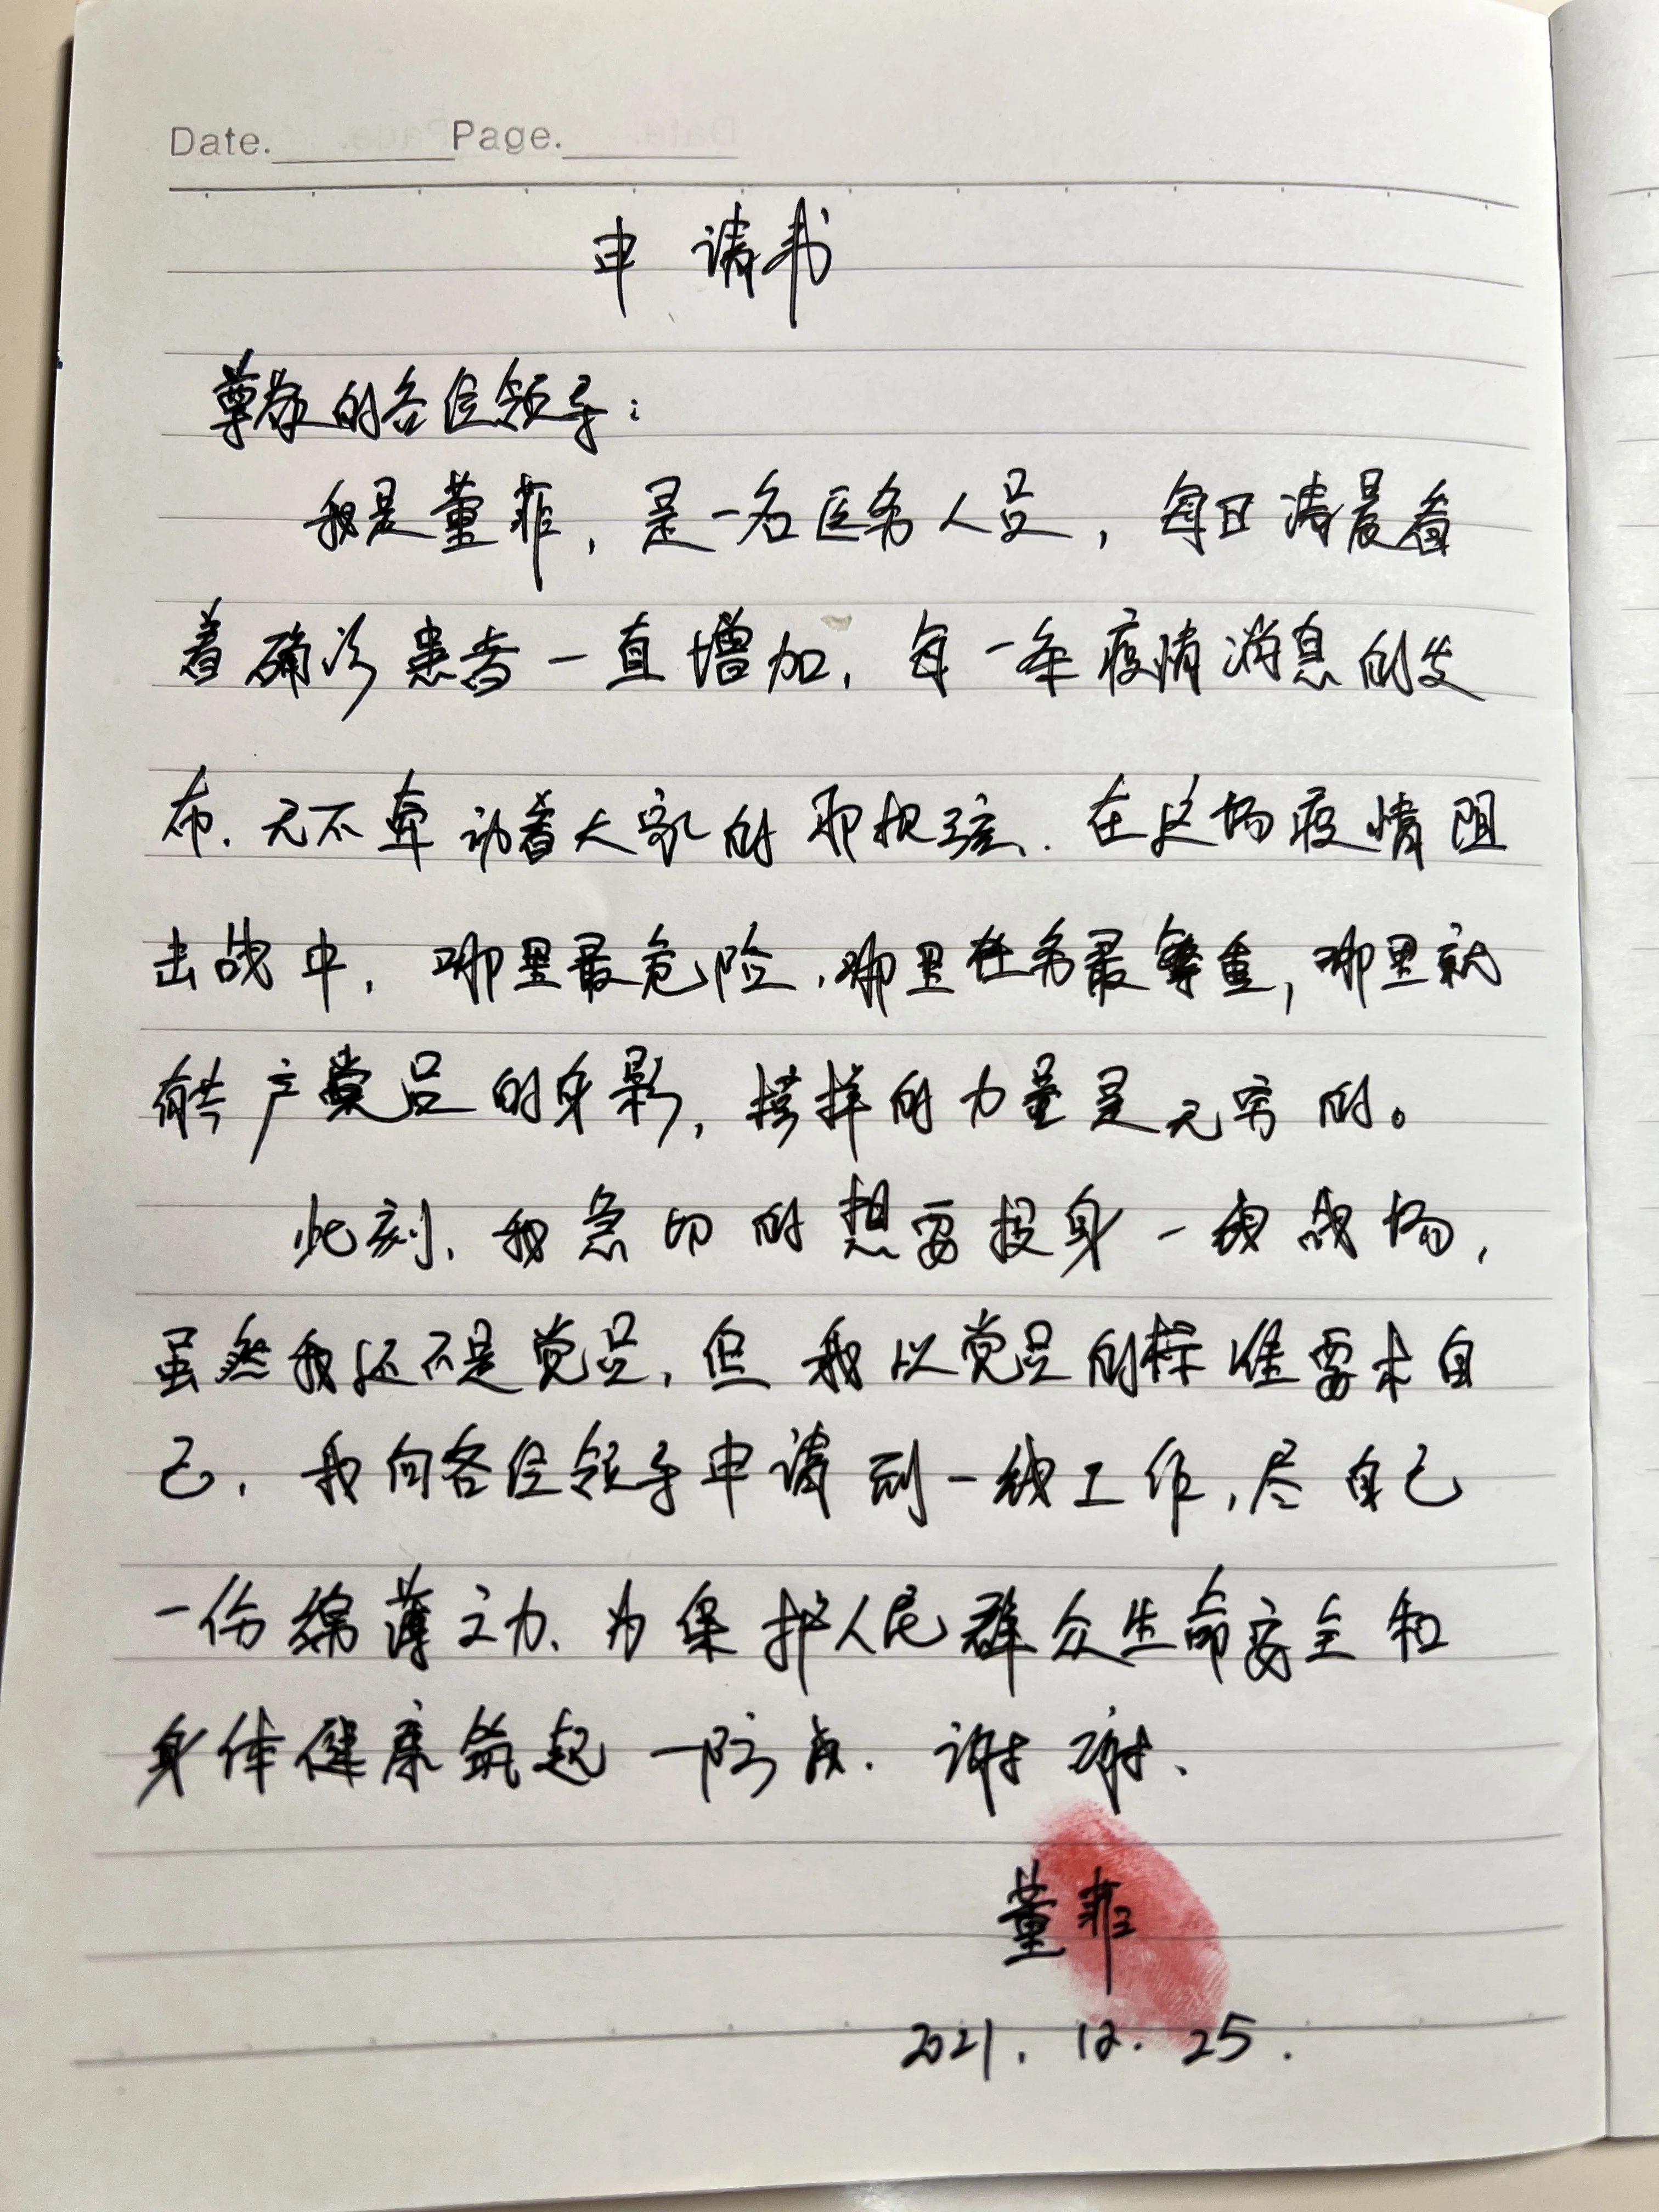 Date. Page.
申请书
尊敬的各位领导：
我是董菲，是一名医务人员，每日清晨看
着确诊患者一直增加，每一条疫情消息的发
布，无不牵动着大家的那根弦．在这场疫情阻
击战中，哪里最危险，哪里任务最繁重，哪里就
有共产党员的身影，榜样的力量是无穷的。
此刻，我急切的想要投身一线战场，
虽然我还不是党员，但我以党员的标准要求自
己，我向各位领导申请到一线工作，尽自己
一份绵薄之力、为保护人民群众生命安全和
身体健康筑起一防线．谢谢、
董菲
2021．12．25．